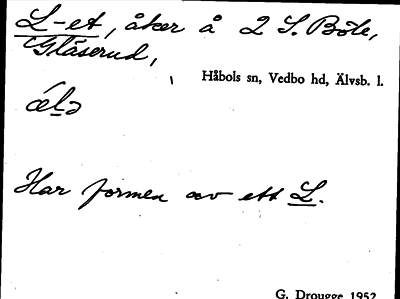 L-et, åker å 2 S. Böle,
Gläserud,
Håbols sn, Vedbo hd, Älvsb. l.
ǽlə
Har formen av ett L.
G. Drougge 1952